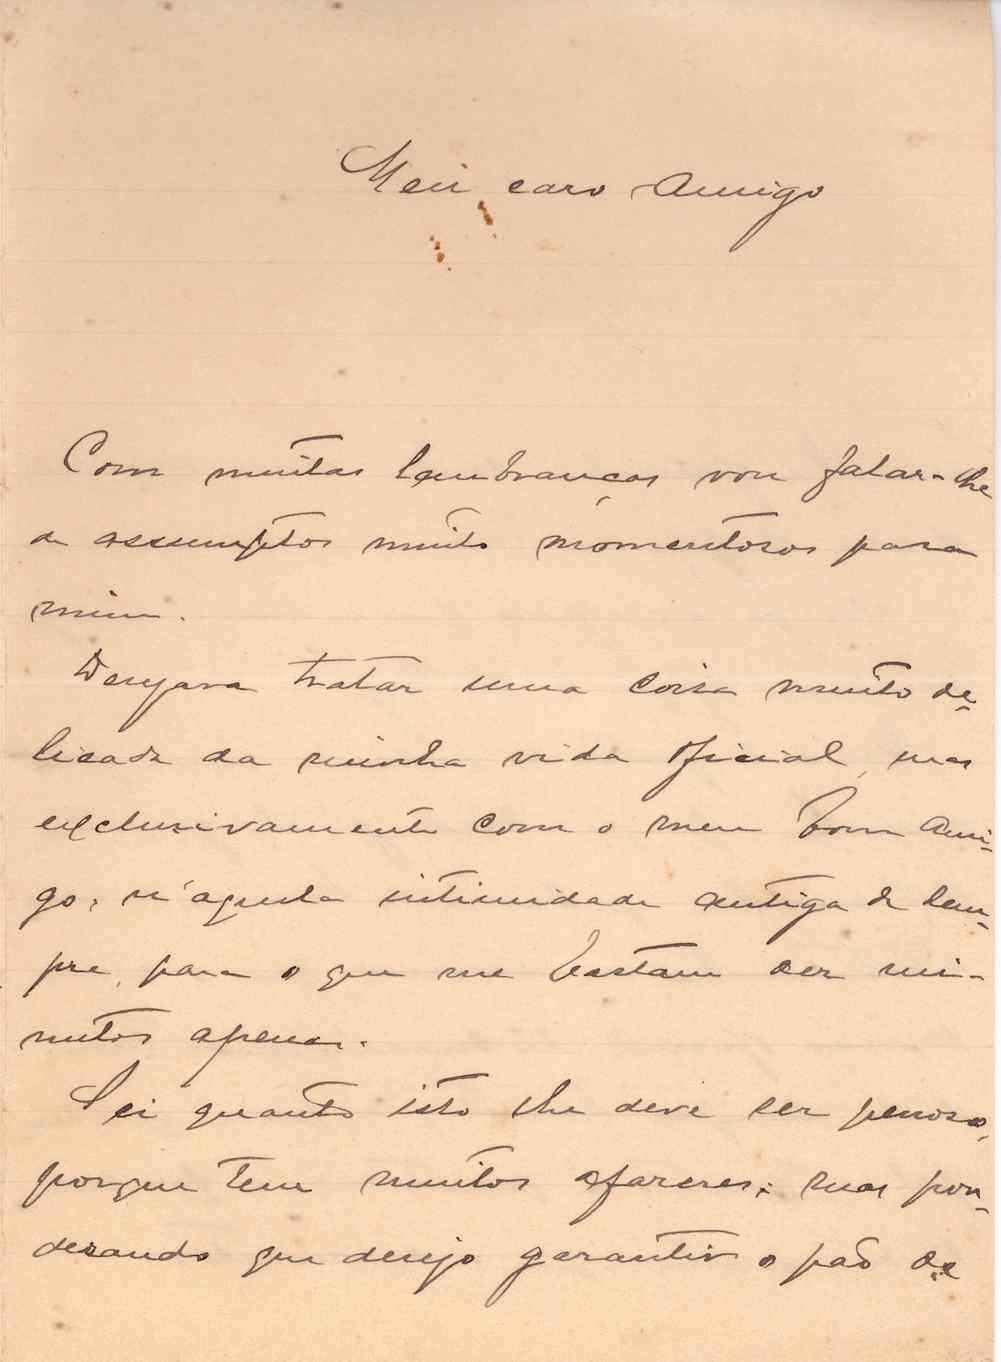 Meu caro Amigo
Com muitas lembranças vou falar-lhe
de assumptos muito momentosos para
mim.
Desejava tratar uma coisa muito de-
licada da minha vida oficial, mas
exclusivamente com o meu bom Ami-
go, n'aquela intimidade antiga de sem-
pre, para o que me bastam dez mi-
nutos apenas.
Sei quanto isto lhe deve ser penoso,
porque tem muitos afazeres; mas pon-
derando que desejo garantir o pão de